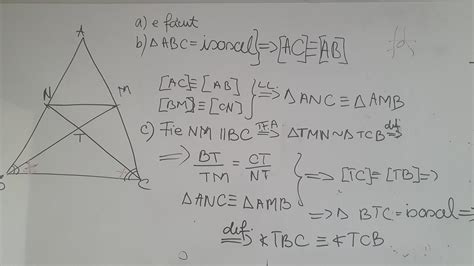 A
N
M
T
B
C
a) e făcut
b) △ABC = isoscel } ⟹ [AC] ≡ [AB]
[AC] ≡ [AB]
[BM] ≡ [CN] } L.L. ⟹ △ANC ≡ △AMB
c) Fie NM ∥ BC TFA ⟹ △TMN ∼ △TCB def.
⟹ BT/TM = CT/NT
△ANC ≡ △AMB } ⟹ [TC] ≡ [TB] ⟹
⟹ △BTC = isoscel ⟹
def. ⟹ ∢TBC ≡ ∢TCB